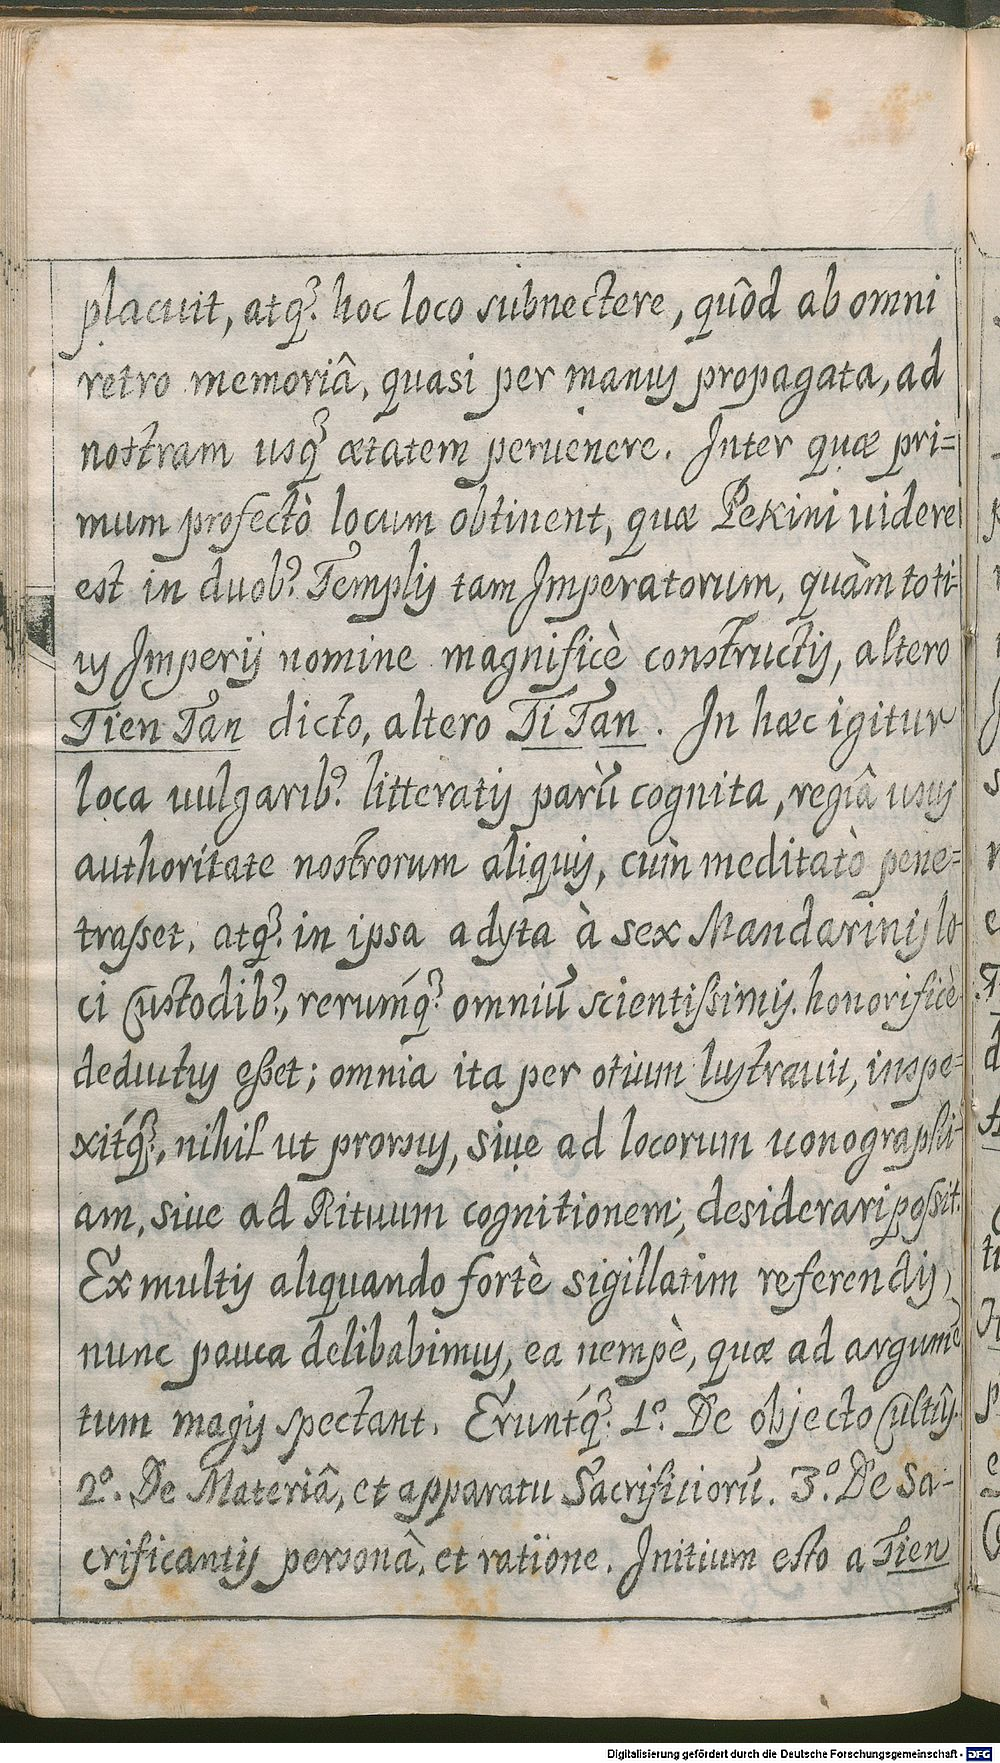 placuit, atq̃. hoc loco subnectere, quôd ab omni
retro memoriâ, quasi per manus propagata, ad
nostram usq̃ ætatem peruenere. Inter quæ pri=
mum profectò locum obtinent, quæ Pekini uidere
est in duob9. Templis tam Imperatorum, quàm toti-
us Imperij nomine magnificè constructis, altero
Tien Tan dicto, altero Ti Tan. In hæc igitur
loca uulgarib9. litteratis parũ cognita, regiâ usus
authoritate nostrorum aliquis, cùm meditatò pene=
trasset, atq̃. in ipsa adyta à sex Mandarinis lo-
ci Custodib9., rerumq́ꝫ. omniũ scientissimis. honorificè
deductus esset; omnia ita per otium lustrauit, inspe=
xitq́ꝫ., nihil ut prorsus, siue ad locorum iconographi-
am, siue ad Rituum cognitionem, desiderari possit.
Ex multis aliquando fortè sigillatim referendis,
nunc pauca delibabimus, ea nempè, quæ ad argumẽ
tum magis spectant. Eruntq́ꝫ. 1º. De objecto Cultûs.
2º. De Materiâ, et apparatu Sacrificiorũ. 3º. De Sa-
crificantis personâ, et ratione. Initium esto a Tien
Digitalisierung gefördert durch die Deutsche Forschungsgemeinschaft - DFG